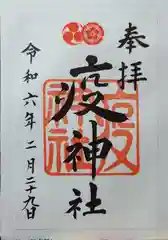 奉拝
疫神社
令和六年二月二十九日